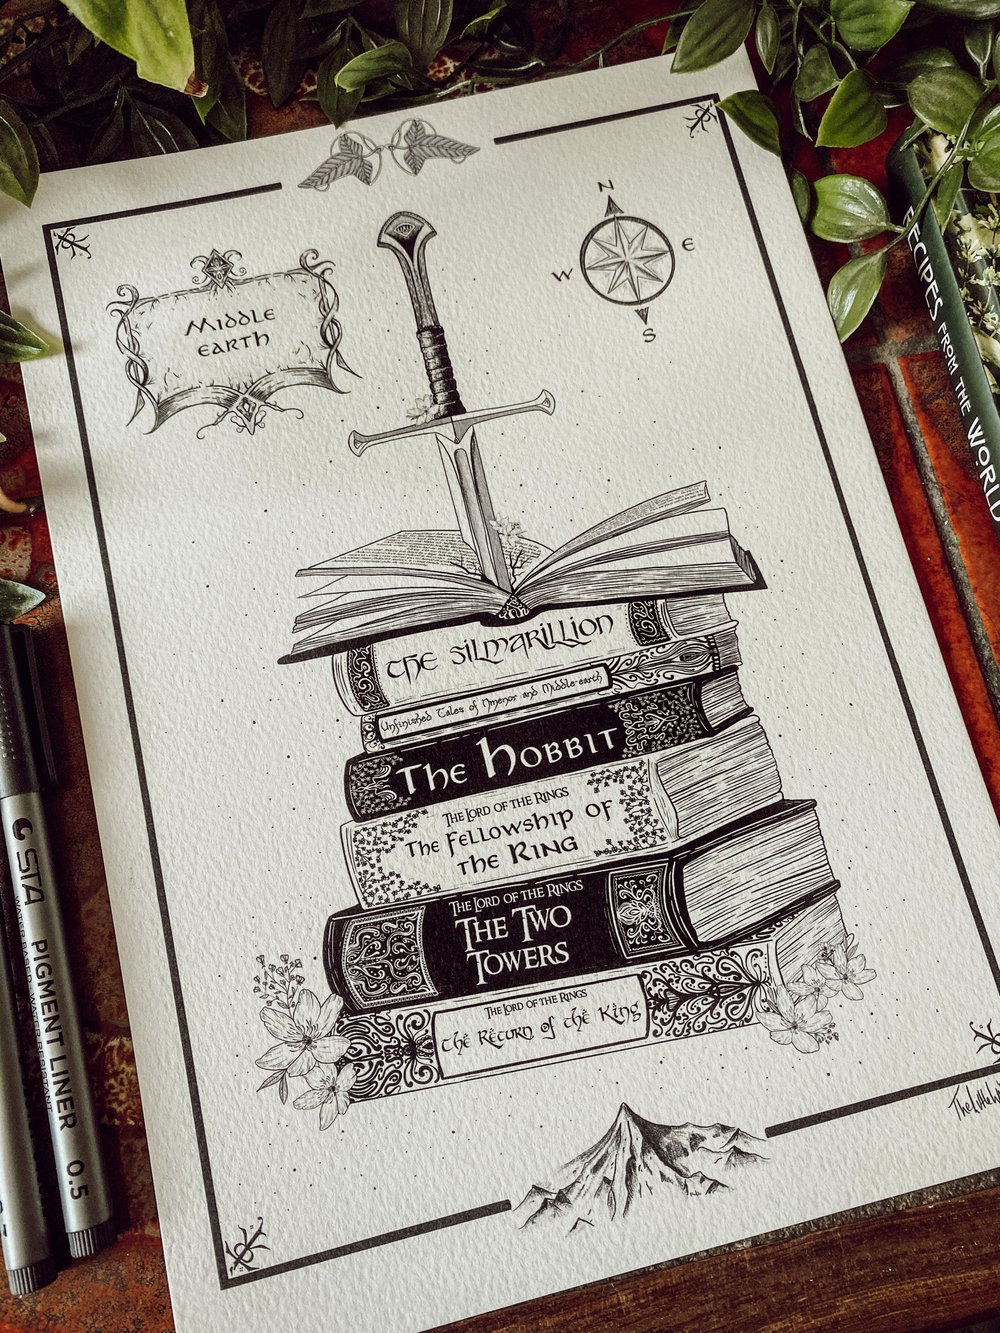 N
W
E
S
MIDDLE
EARTH
THE SILMARILLION
Unfinished Tales of Nmenor and Middle-earth
THE HOBBIT
THE LORD OF THE RINGS
THE FELLOWSHIP OF
THE RING
THE LORD OF THE RINGS
THE TWO
TOWERS
THE LORD OF THE RINGS
THE RETURN of THE King
RECIPES FROM THE WORLD
STA
PIGMENT LINER
WATER BASED • WATER RESISTANT
0.5